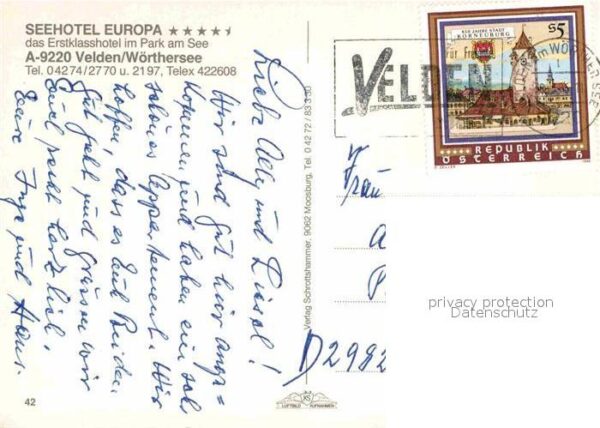 SEEHOTEL EUROPA ★★★★★
das Erstklasshotel im Park am See
A-9220 Velden/Wörthersee
Tel. 0 42 74 / 27 70 u. 21 97, Telex 422608
Liebe und Liesl!
Wir sind gut hier ange=
kommen und haben ein sehr
schönes Appartement. Wir
hoffen, dass es Euch Beiden
gut geht und grüssen wir
Euch recht herzlich,
Eure Inge und Hans.
Verlag Schrottshammer, 9062 Moosburg, Tel. 0 42 72 / 83 3 30
42
KS
LUFTBILD AUFNAHMEN
VELDEN
AM WÖRTHERSEE
850 JAHRE STADT
KORNEUBURG
S5
REPUBLIK
ÖSTERREICH
Frau
A
P
D2982
privacy protection
Datenschutz